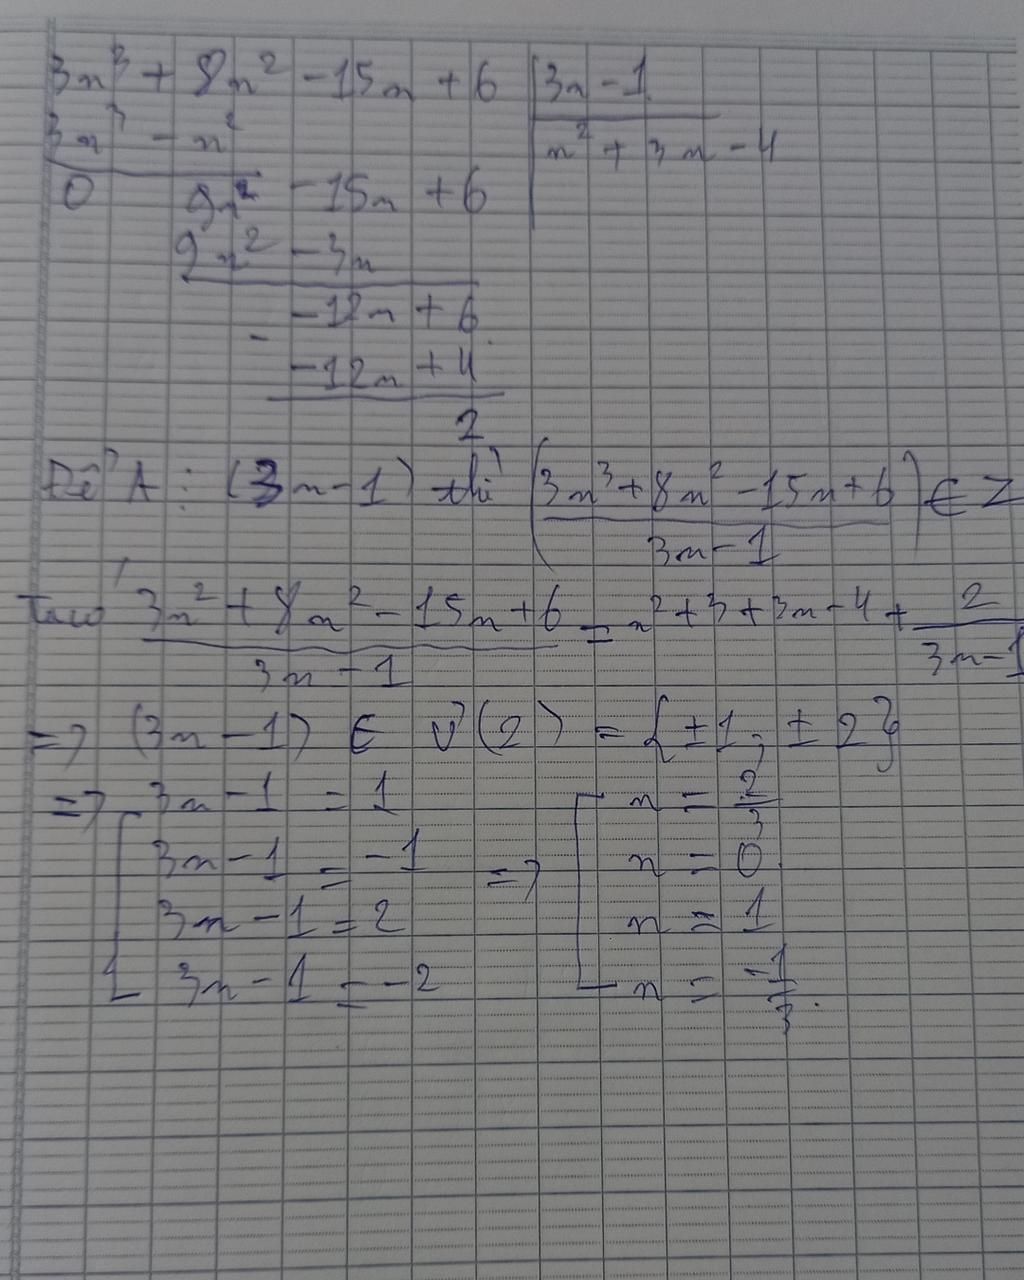 3n³ + 8n² - 15n + 6 | 3n - 1
3n³ - n² | n² + 3n - 4
0 9n² - 15n + 6
9n² - 3n
- 12n + 6
-
- 12n + 4
2
Để A ⋮ (3n - 1) thì (3n³ + 8n² - 15n + 6 / 3n - 1) ∈ Z
Ta có 3n² + 8n² - 15n + 6 / 3n - 1 = n² + 3 + 3n - 4 + 2 / 3n - 1
=> (3n - 1) ∈ Ư(2) = {±1; ±2}
=> [ 3n - 1 = 1 [ n = 2/3
3n - 1 = -1 => n = 0
3n - 1 = 2 n = 1
3n - 1 = -2 n = -1/3.